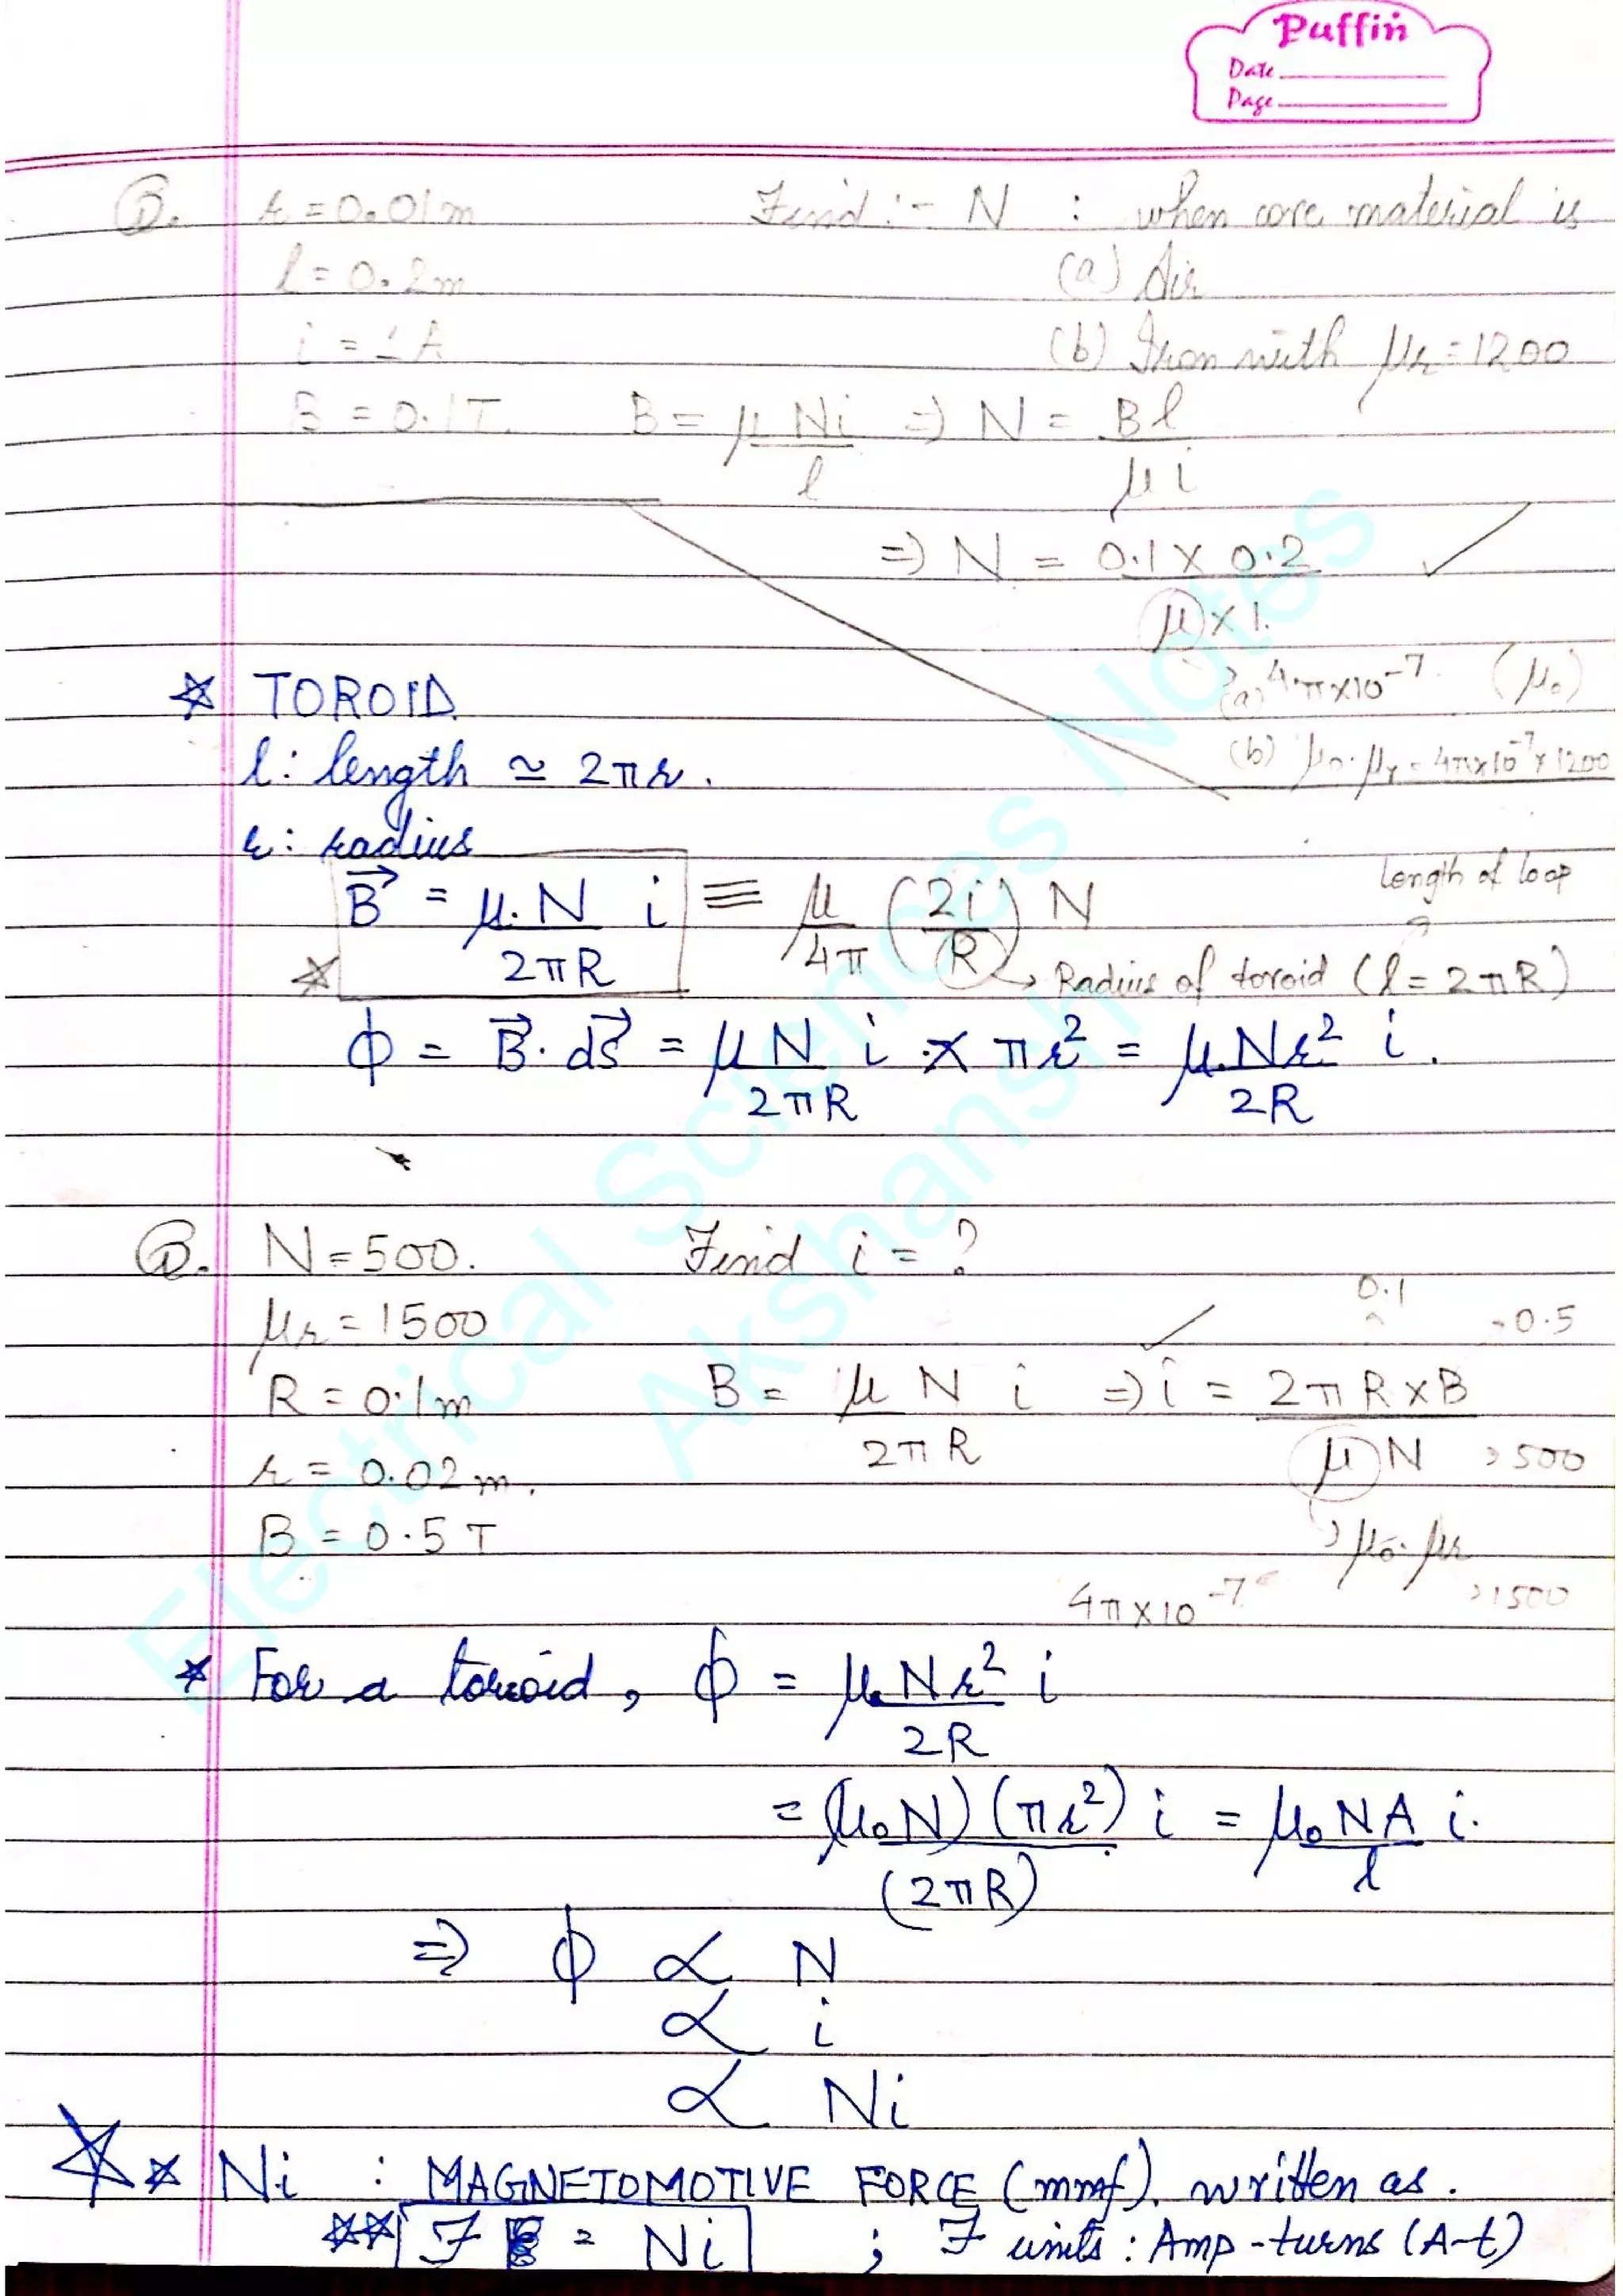 Puffin
Date
Page
Q. r = 0.01m Find :- N : when core material is
l = 0.2m (a) Air
i = 1A (b) Iron with μr = 1200
B = 0.1T. B = μ Ni / l ⇒ N = Bl / μ i
⇒ N = 0.1 × 0.2 / μ × 1.
(a) 4π×10^-7 (μ₀)
☆ TOROID
l : length ≃ 2πr.
(b) μ₀.μr = 4π×10^-7 × 1200
r : radius
B⃗ = μ.N / 2πR i ≡ μ / 4π (2i / R) N
length of loop
☆ → Radius of toroid (l = 2πR)
ϕ = B⃗. dS⃗ = μ N / 2πR i × πr² = μ.Nr² / 2R i.
Q. N = 500. Find i = ?
μr = 1500
0.1 0.5
R = 0.1m B = μ N / 2πR i ⇒ i = 2πR×B / μN
500
r = 0.02m.
B = 0.5T
μ₀. μr
4π×10^-7 1500
☆ For a toroid, ϕ = μ.Nr² / 2R i
= (μ₀N) (πr²) / (2πR) i = μ₀NA / l i.
⇒ ϕ ∝ N
∝ i
∝ Ni
☆☆ Ni : MAGNETOMOTIVE FORCE (mmf). written as.
☆☆ F = Ni ; F units : Amp-turns (A-t)
Electrical Sciences Notes
Akshansh